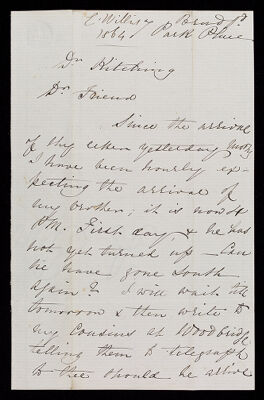 C. Willis Bradfd
1864 Park Place
Dr. Kitching
Dr. Friend
Since the arrival
of thy letter yesterday
I have been hourly ex-
pecting the arrival of
my brother; it is now 4
P.M. First day, & he has
not yet turned up — Can
he have gone South
again? I will wait till
tomorrow & then write to
my cousins at Woodbridge
telling them to telegraph
to thee should he arrive